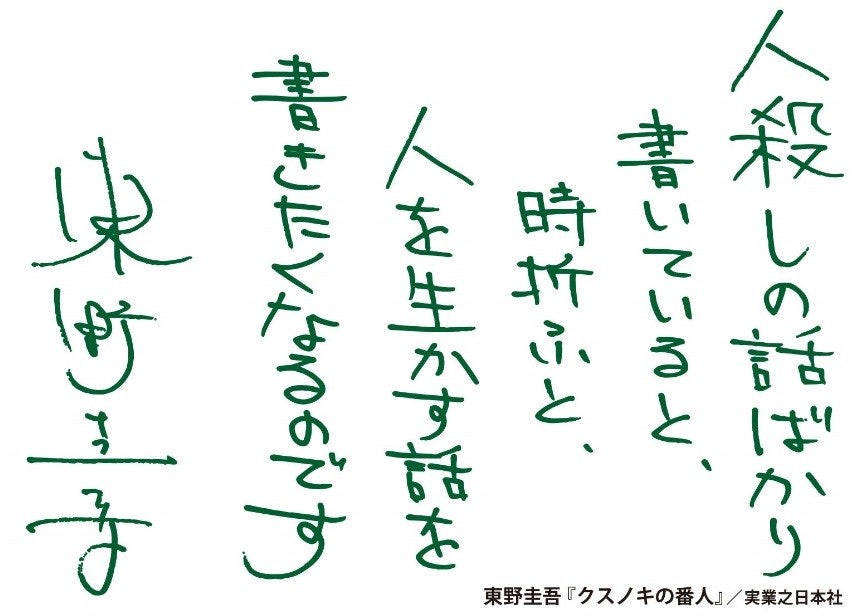 人殺しの話ばかり
書いていると、
時折ふと、
人を生かす話を
書きたくなるのです
東野圭吾
東野圭吾『クスノキの番人』／実業之日本社